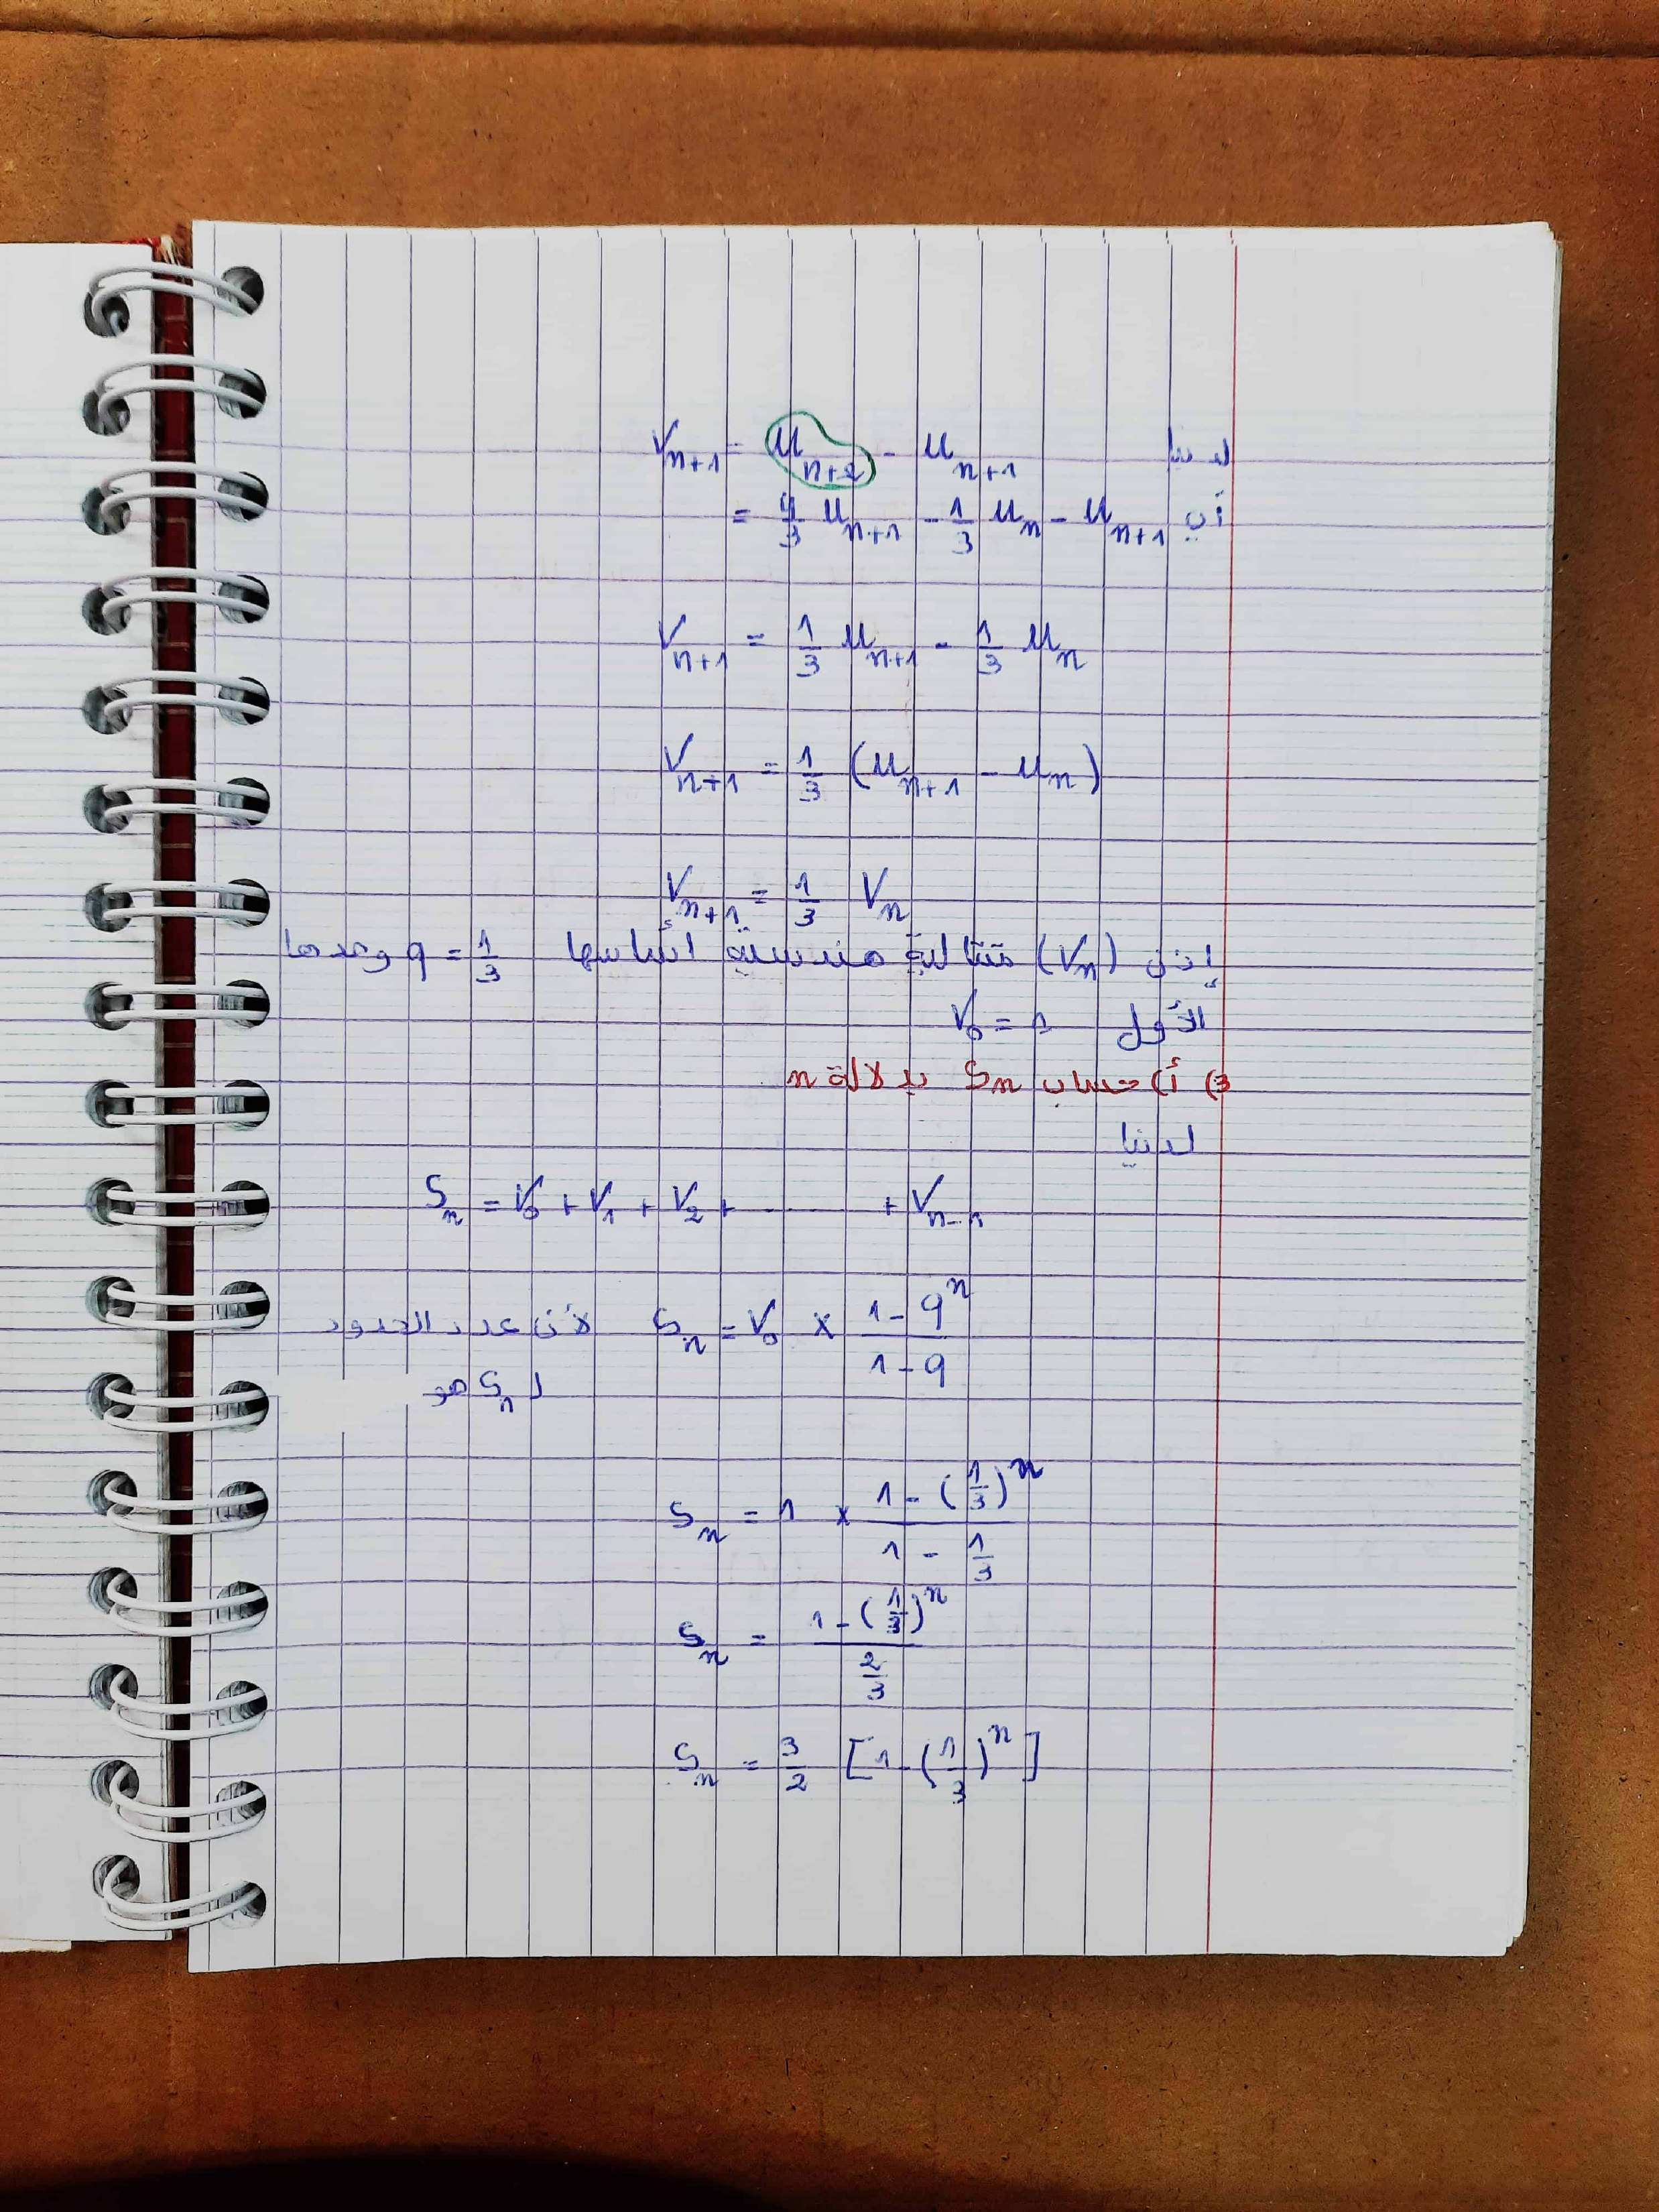 لدينا V_{n+1} = u_{n+2} - u_{n+1}
أي = \frac{4}{3} u_{n+1} - \frac{1}{3} u_n - u_{n+1}
V_{n+1} = \frac{1}{3} u_{n+1} - \frac{1}{3} u_n
V_{n+1} = \frac{1}{3} (u_{n+1} - u_n)
V_{n+1} = \frac{1}{3} V_n
إذن (V_n) متتالية هندسية أساسها q = \frac{1}{3} وحدها
الأول V_0 = 1
3) أ) حساب S_n بدلالة n
لدينا
S_n = V_0 + V_1 + V_2 + ........ + V_{n-1}
S_n = V_0 × \frac{1 - q^n}{1 - q} لأن عدد الحدود
ل S_n هو
S_n = 1 × \frac{1 - (\frac{1}{3})^n}{1 - \frac{1}{3}}
S_n = \frac{1 - (\frac{1}{3})^n}{\frac{2}{3}}
S_n = \frac{3}{2} [1 - (\frac{1}{3})^n]